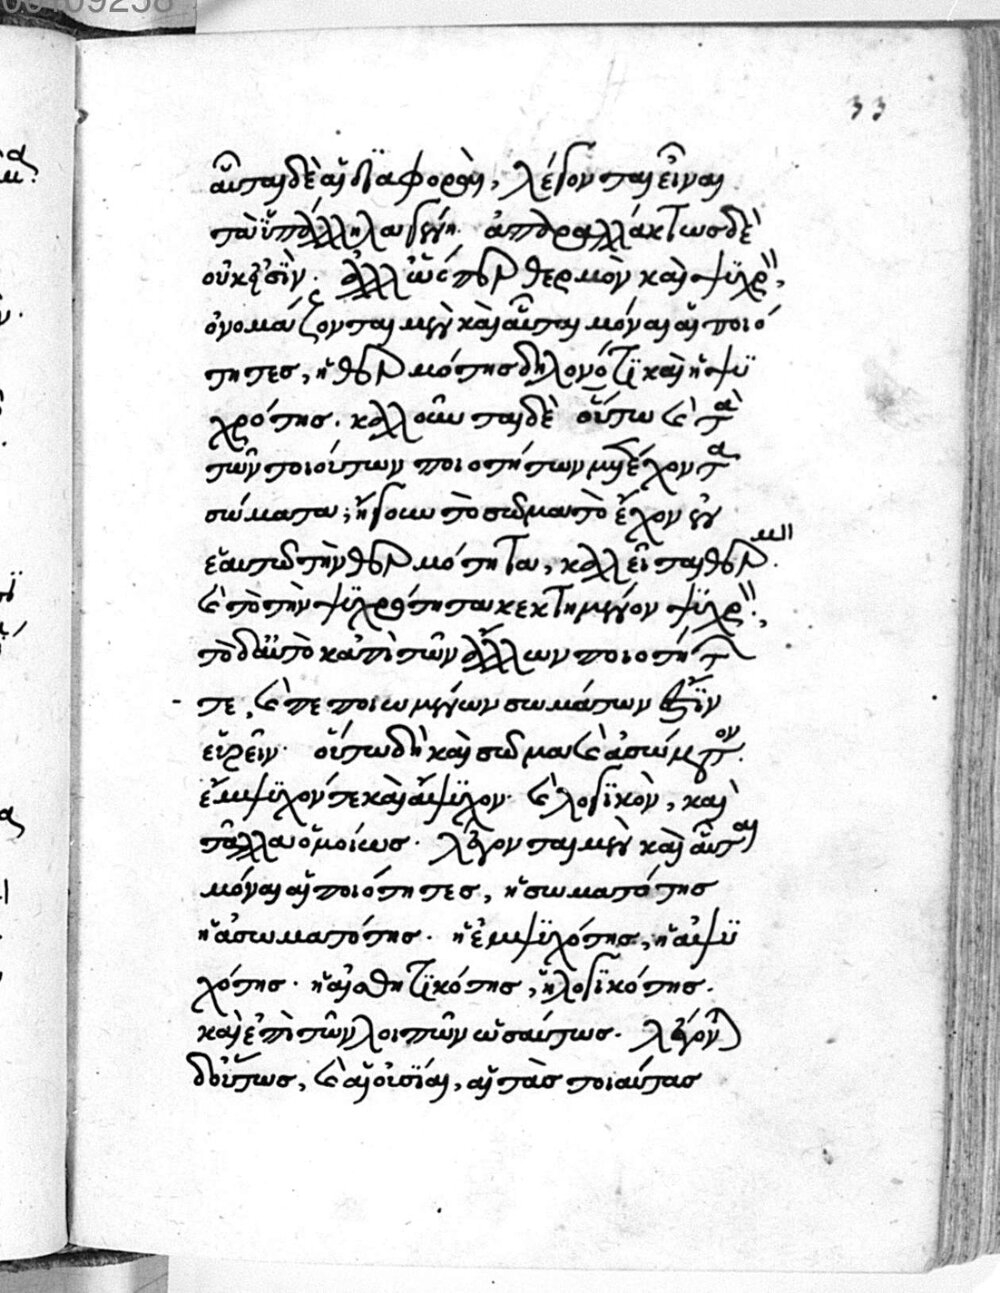 33
αὗται δὲ αἱ διαφοραὶ, λέγονται εἶναι
τὰ ὑπάλληλα γένη. ἀπαραλλάκτως δὲ
οὐκ εἰσὶν. ἀλλ' ὥσπερ θερμὸν καὶ ψυχρὸν,
ὀνομάζονται μὲν καὶ αὗται μόναι αἱ ποιό
τητες, ἡ θερμότης δηλονότι καὶ ἡ ψυ
χρότης. καλοῦνται δὲ οὕτω καὶ τὰ
τῶν τοιούτων ποιοτήτων μετέχοντα
σώματα, ἤγουν τὸ σῶμα τὸ ἔχον ἐν
ἑαυτῷ τὴν θερμότητα, καλεῖται θερμὸν.
καὶ τὸ τὴν ψυχρότητα κεκτημένον ψυχρὸν,
τὸ δ' αὐτὸ κἀπὶ τῶν ἄλλων ποιοτήτων
τε, καὶ πεποιωμένων σωμάτων ἐστὶν
εὑρεῖν. οὕτω δὴ καὶ σῶμα καὶ ἀσώματον.
ἔμψυχόν τε καὶ ἄψυχον. καὶ λογικὸν, καὶ
τἄλλα ὁμοίως. λέγονται μὲν καὶ αὗται
μόναι αἱ ποιότητες, ἡ σωματότης
ἡ ἀσωματότης. ἡ ἐμψυχότης, ἡ ἀψυ
χότης. ἡ αἰσθητικότης, ἡ λογικότης.
καὶ ἐπὶ τῶν λοιπῶν ὡσαύτως. λέγονται
δ' οὕτως, καὶ αἱ οὐσίαι, αἱ τὰς τοιαύτας